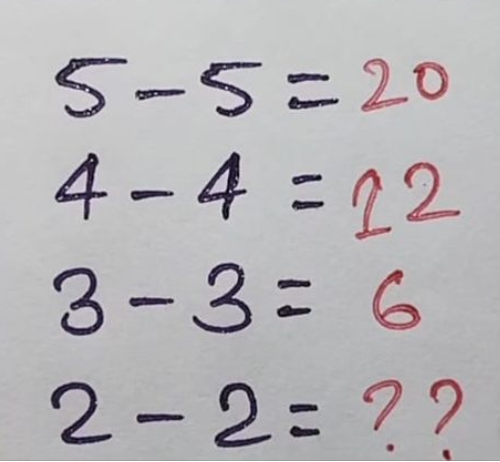 5 - 5 = 20
4 - 4 = 12
3 - 3 = 6
2 - 2 = ??